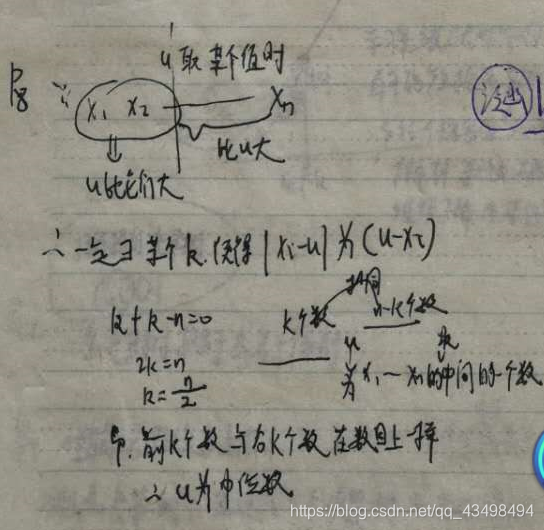 u取某个值时
P8 ∵ x₁ x₂ —— xₙ
比u大
u比它们大
∴一定∃某个k,使得|xᵢ-u|为(u-xᵢ)
k+k-n=0 k个数 n-k个数
2k=n u
k=n/2 为x₁~xₙ的中间的一个数
即,前k个数与右k个数在数目上一样
∴u为中位数
https://blog.csdn.net/qq_43498494